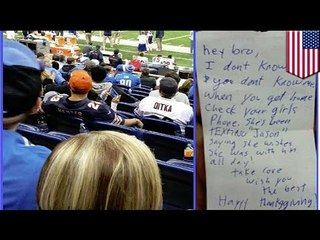 DITKA
hey bro,
I dont know
& you dont know me
when you get home
Check your girls
Phone. She's been
TEXTING "Jason"
Saying she wishes
She was with him
all day
take care
wish you
the best